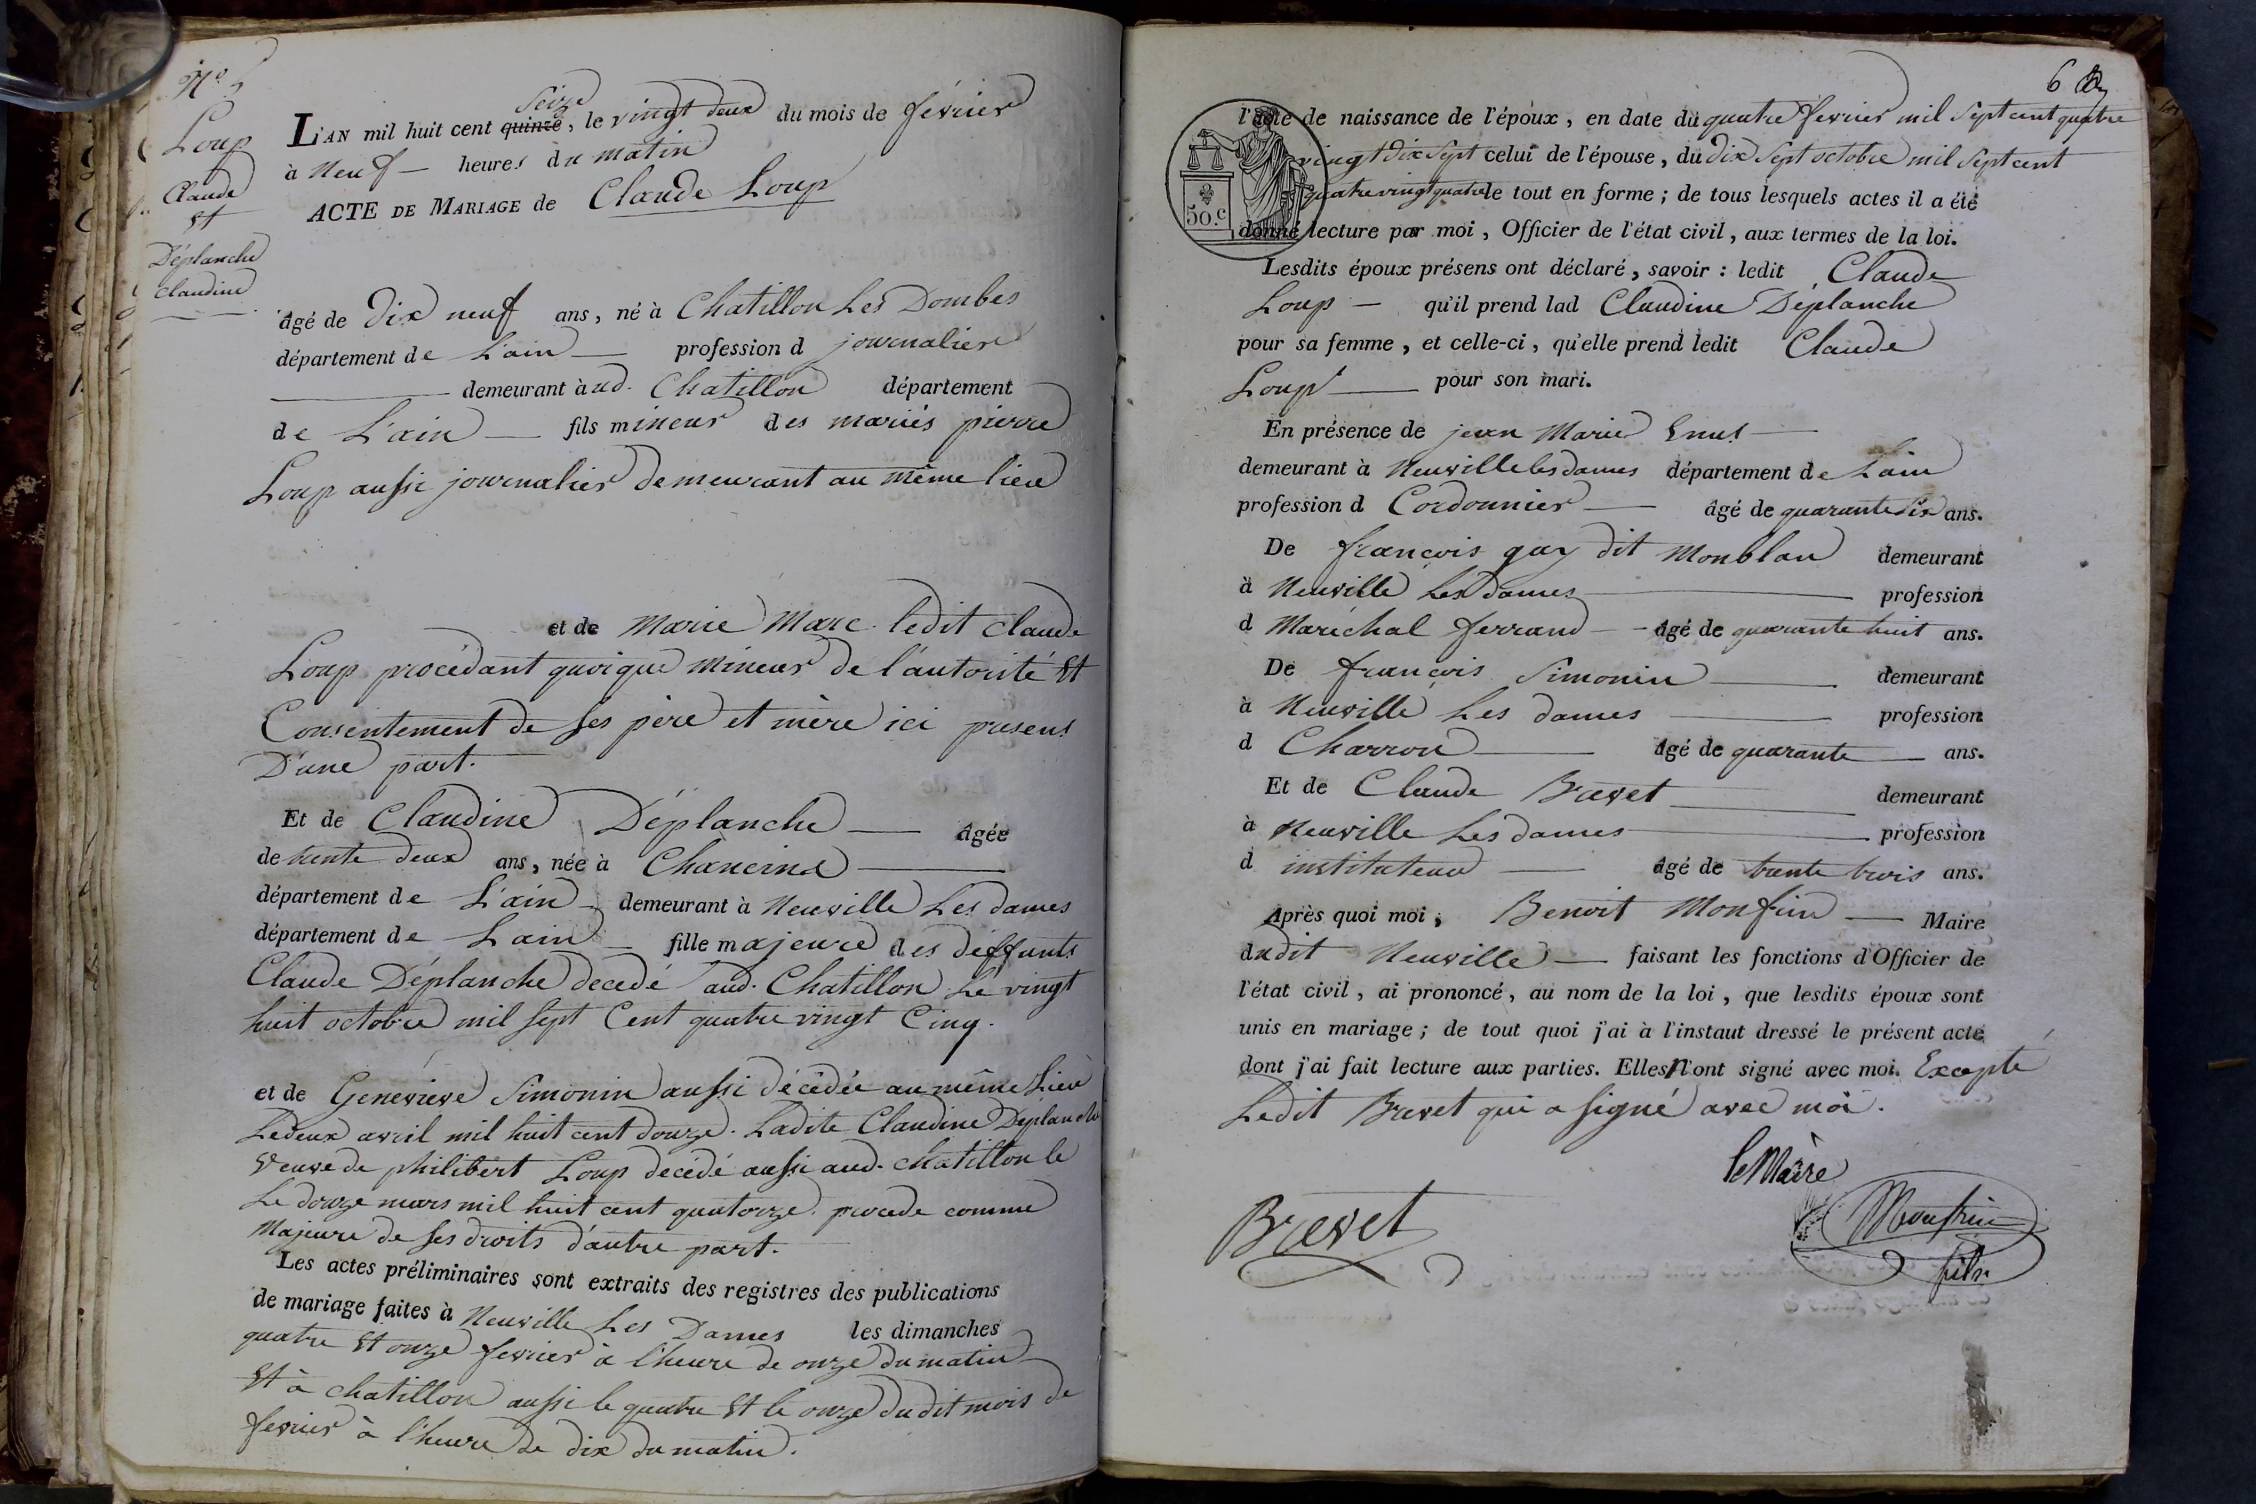 N.º
Loup
Claude
et
Déplanche
Claudine
Seize
L'AN mil huit cent quinze, le vingt deux du mois de février
à Neuf heures du matin
ACTE DE MARIAGE de Claude Loup
âgé de dix neuf ans, né à Chatillon Les Dombes
département de L'ain profession d journalier
demeurant à ud. Chatillon département
de L'ain fils mineur des mariés pierre
Loup aussi journalier demeurant au même lieu
et de Marie Marc. ledit Claude
Loup procédant quoique mineur de l'autorité Et
Consentement de ses père et mère ici presens
D'une part.
Et de Claudine Déplanche âgée
de trente deux ans, née à Chaneins
département de L'ain demeurant à Neuville Les dames
département de Lain fille majeure des déffunts
Claude Déplanche decedé aud. Chatillon Le vingt
huit octobre mil sept Cent quatre vingt Cinq.
et de Geneviève Simonin aussi décédée au même Lieu
Le deux avril mil huit cent douze. Ladite Claudine Déplanche
Veuve de philibert Loup decédé aussi aud. chatillon le
Le douze mars mil huit cent quatorze. procede comme
Majeure de ses droits d'autre part.
Les actes préliminaires sont extraits des registres des publications
de mariage faites à Neuville Les Dames les dimanches
quatre Et onze fevrier à l'heure de onze du matin
Et à chatillon aussi le quatre Et le onze dudit mois de
fevrier à l'heure de dix du matin.
6
50.c
l'acte de naissance de l'époux, en date du quatre fevrier mil Sept cent quatre
vingt dix Sept celui de l'épouse, du dix Sept octobre mil Sept cent
quatre vingt quatre le tout en forme ; de tous lesquels actes il a été
donné lecture par moi, Officier de l'état civil, aux termes de la loi.
Lesdits époux présens ont déclaré, savoir : ledit Claude
Loup qu'il prend lad Claudine Déplanche
pour sa femme, et celle-ci, qu'elle prend ledit Claude
Loup pour son mari.
En présence de jean Marie
demeurant à Neuville les dames département de Lain
profession d Cordonnier âgé de quarante Six ans.
De françois gay dit Monblan demeurant
à Neuville Les dames profession
d Maréchal ferrand âgé de quarante huit ans.
De françois Simonin demeurant
à Neuville Les dames profession
d Charron âgé de quarante ans.
Et de Claude Brevet demeurant
à Neuville Les dames profession
d instituteur âgé de trente trois ans.
Après quoi moi, Benoit Monfrin Maire
dudit Neuville faisant les fonctions d'Officier de
l'état civil, ai prononcé, au nom de la loi, que lesdits époux sont
unis en mariage ; de tout quoi j'ai à l'instaut dressé le présent acte
dont j'ai fait lecture aux parties. Elles n'ont signé avec moi. Excepté
Ledit Brevet qui a signé avec moi.
le Maire
Brevet
Monfrin
fils